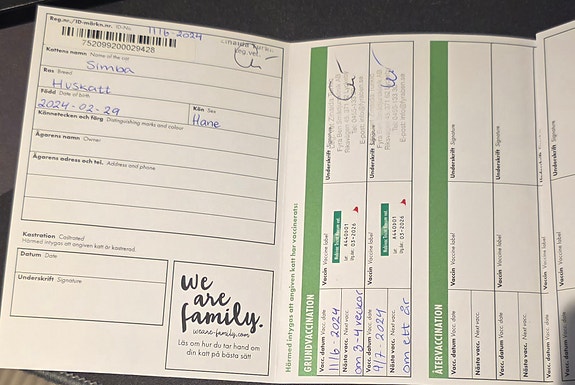 Reg.nr./ID-märkn.nr. ID-No 11/6-2024
752099200029428
leg.vet.
Kattens namn Name of the cat
Simba
Ras Breed
Huskatt
Född Date of birth
2024-02-29
Kön Sex
Hane
Kännetecken och färg Distinguishing marks and colour
Ägarens namn Owner
Ägarens adress och tel. Address and phone
Kastration Castrated
Härmed intygas att angiven katt är kastrerad.
Datum Date
Underskrift Signature
we
are
family.
weare-family.com
Läs om hur du tar hand om
din katt på bästa sätt
Härmed intygas att angiven katt har vaccinerats:
GRUNDVACCINATION
Vacc. datum Vacc. date
11/6 2024
Nästa vacc. Next vacc.
om 3-4 veckor
Vaccin Vaccine label
Lot A440D01
03-2026
Underskrift Signature
Vacc. datum Vacc. date
9/7 2024
Nästa vacc. Next vacc.
om ett år
Vaccin Vaccine label
Lot A440D01
03-2026
Underskrift Signature
ÅTERVACCINATION
Vacc. datum Vacc. date
Nästa vacc. Next vacc.
Vaccin Vaccine label
Underskrift Signature
Vacc. datum Vacc. date
Nästa vacc. Next vacc.
Vaccin Vaccine label
Underskrift Signature
Vacc. datum Vacc. date
Vaccin Vaccine label
Underskrift Signature